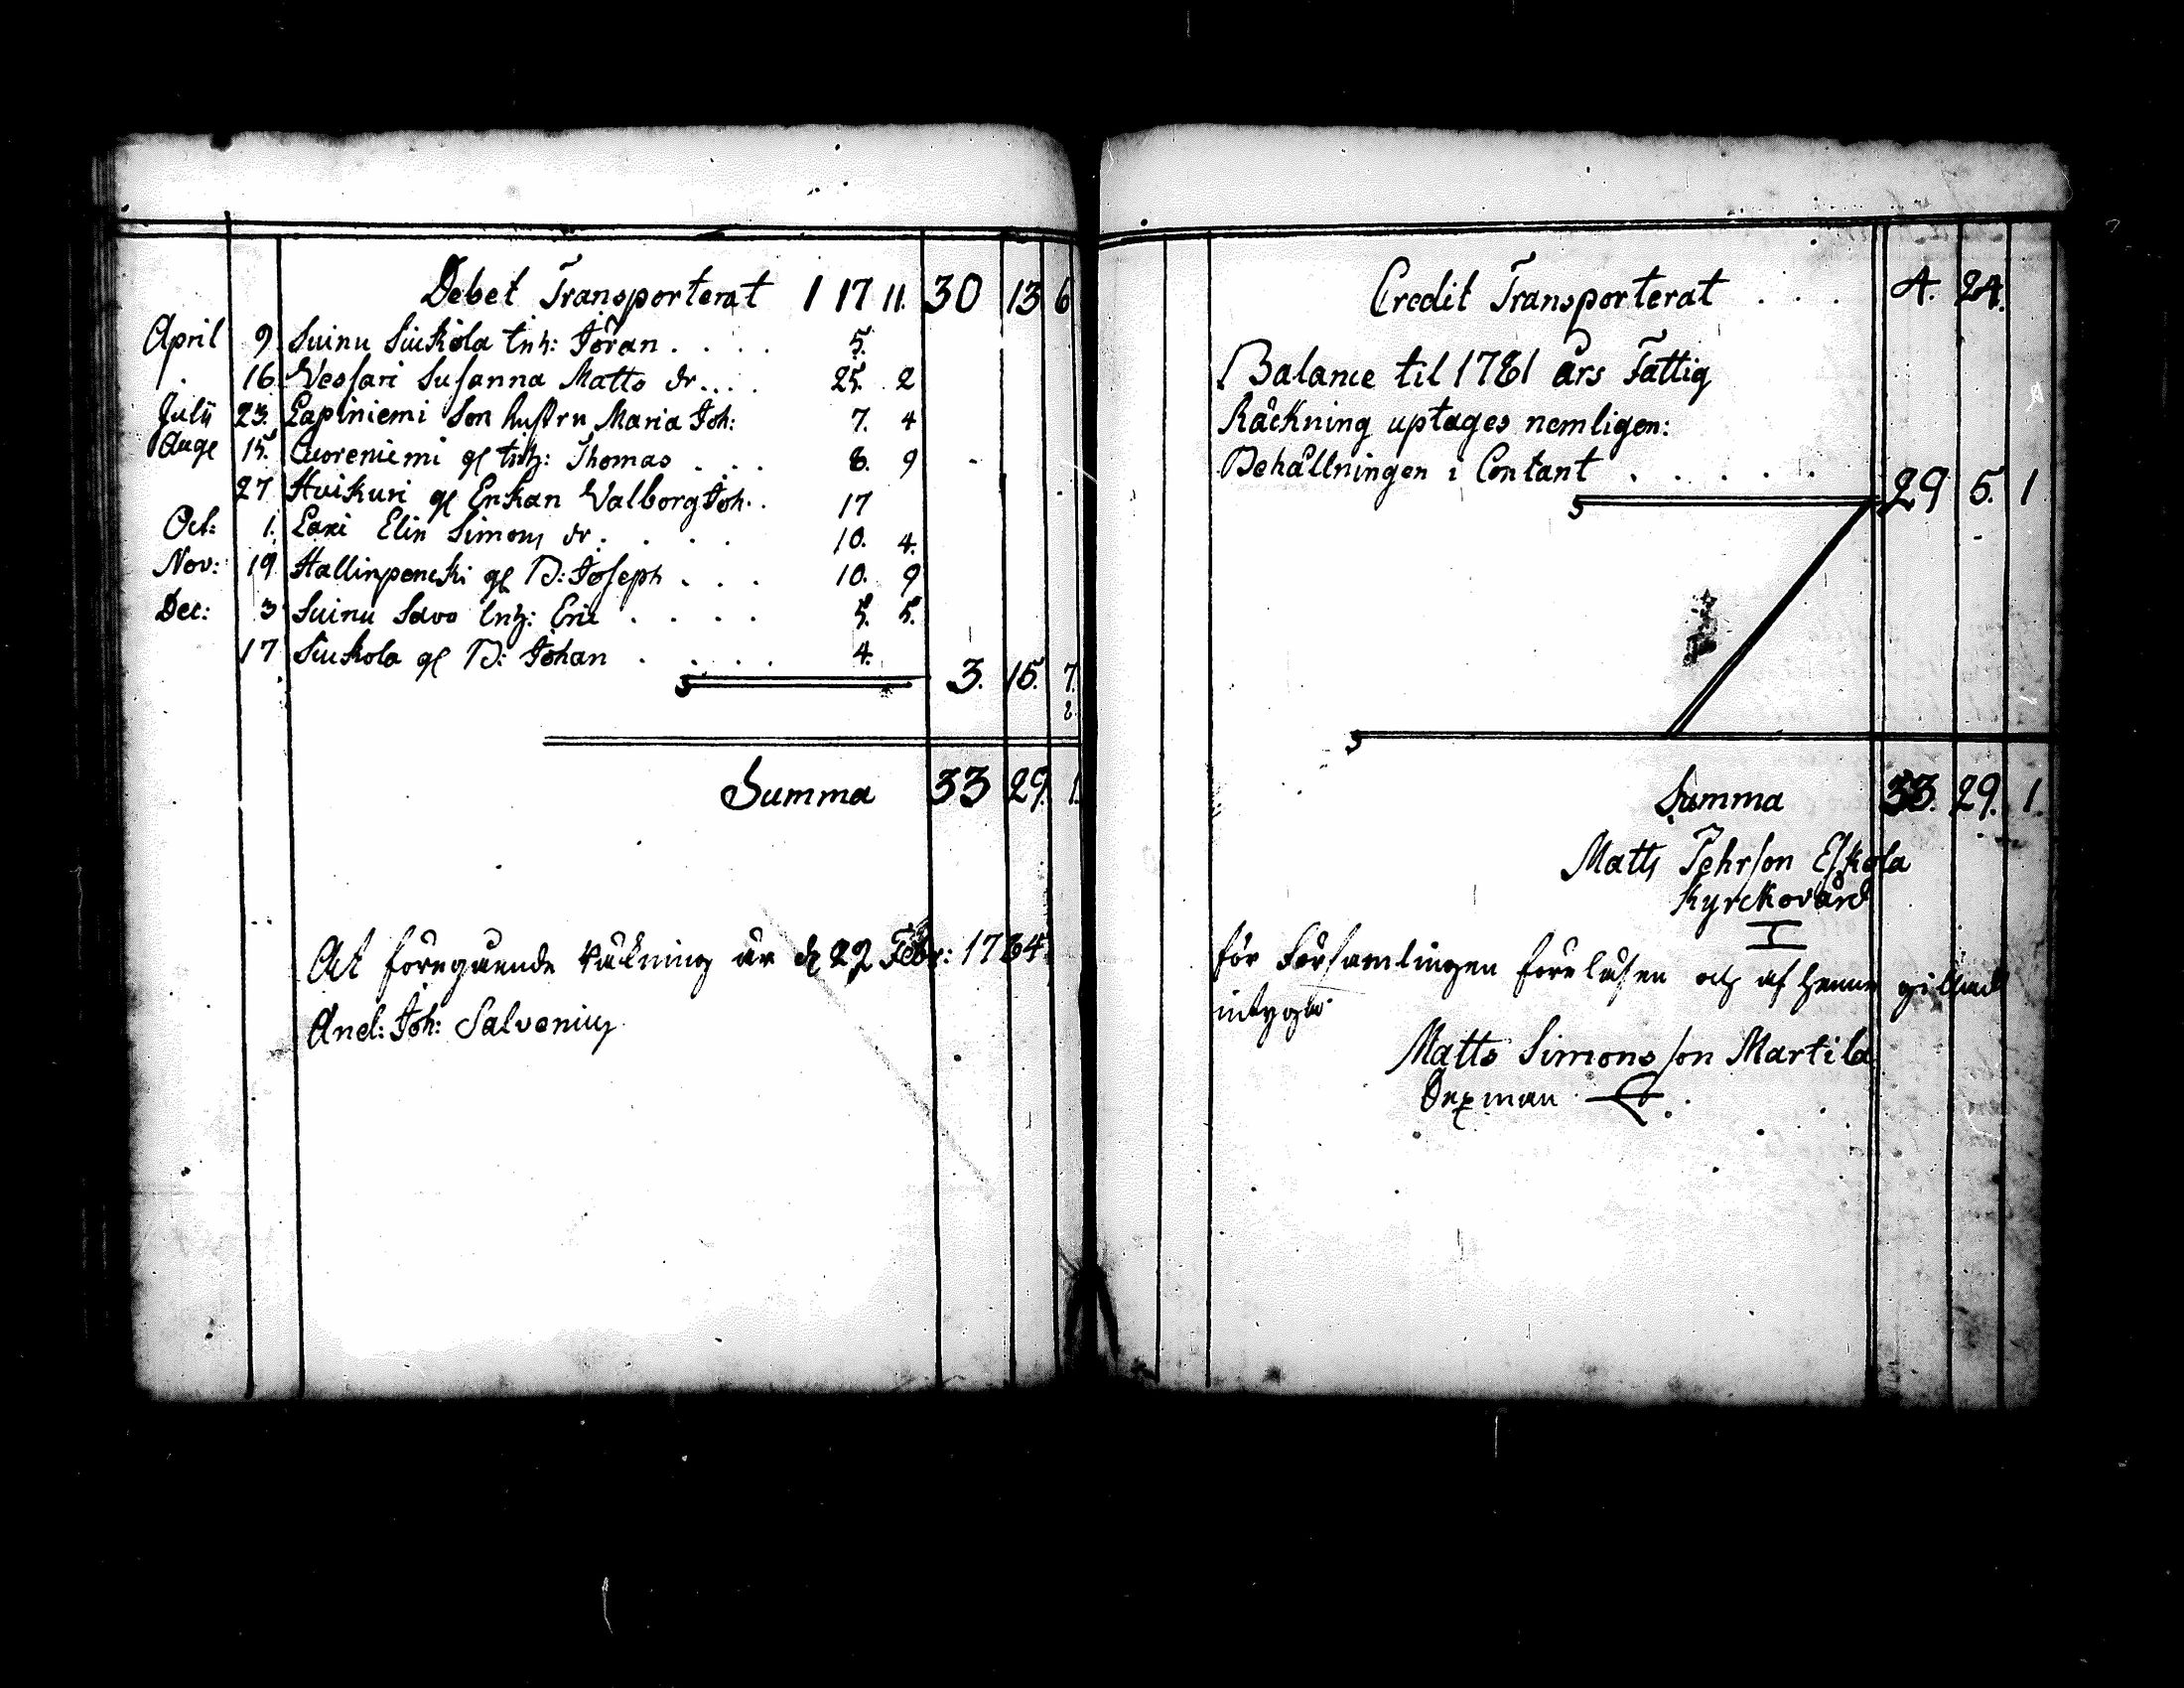 Debet Transporterat 1 17 11. 30 13 6
April 9 Suinu Siukola Inh: Jöran . . . . 5.
16 Vessari Susanna Matts dr. . . . 25. 2
Julii 23. Lapiniemi Son hustru Maria Joh: 7. 4
Auge 15. Cuoreniemi gl Inh: Thomas . . . 8. 9
27 Huikuri gl Enkan Valborg Joh. . 17
Oct: 1. Lari Elin Simons dr. . . . . 10. 4.
Nov: 19 Hallinpencki gl B: Joseph . . . 10. 9
Dec: 3 Suinu Savo Inh: Eric . . . . 5. 5.
17 Siukola gl B: Johan . . . . 4.
3. 15. 7.
Summa 33 29. 1.
At föregående räkning är d 22 Febr: 1784
And: Joh: Salvenius
Credit Transporterat . . . 4. 24.
Balance til 1781 års Fattig
Räckning uptages nemligen:
Behållningen i Contant . . . . . 29 5. 1
Summa 33. 29. 1.
Matts Pehrson Eskola
Kyrckovärd
för Församlingen föreläsen och af henne gillad
intygar
Matts Simonsson Martila
Sexman